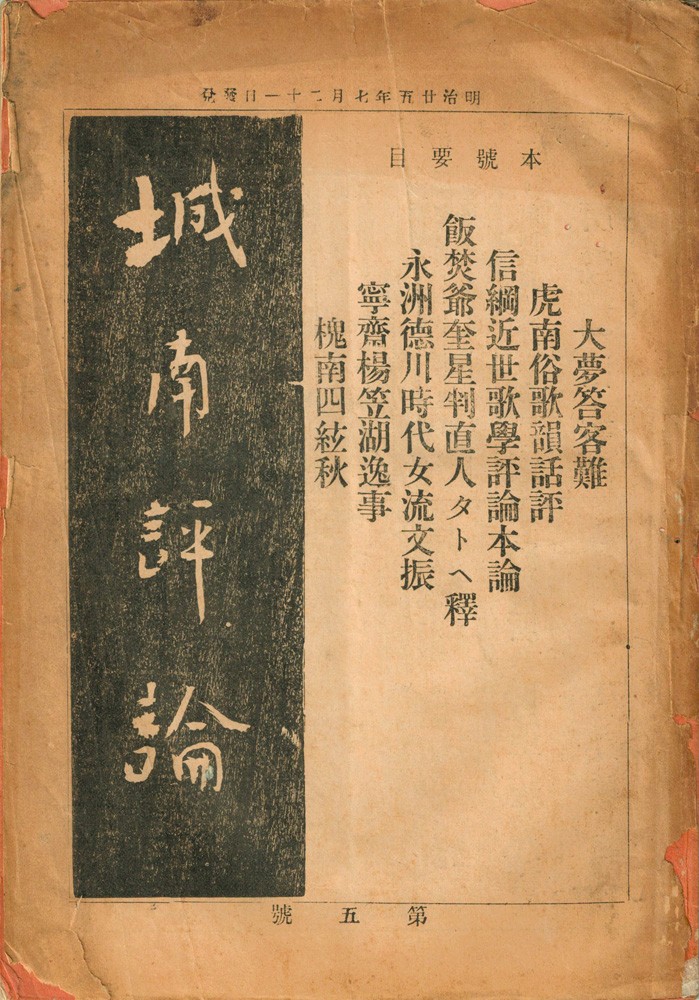 明治廿五年七月二十一日發兌
本號要目
大夢答客難
虎南俗歌韻話評
信綱近世歌學評論本論
飯焚爺奎星判直人タトヘ釋
永洲德川時代女流文振
寧齋楊笠湖逸事
槐南四絃秋
城南評論
第五號